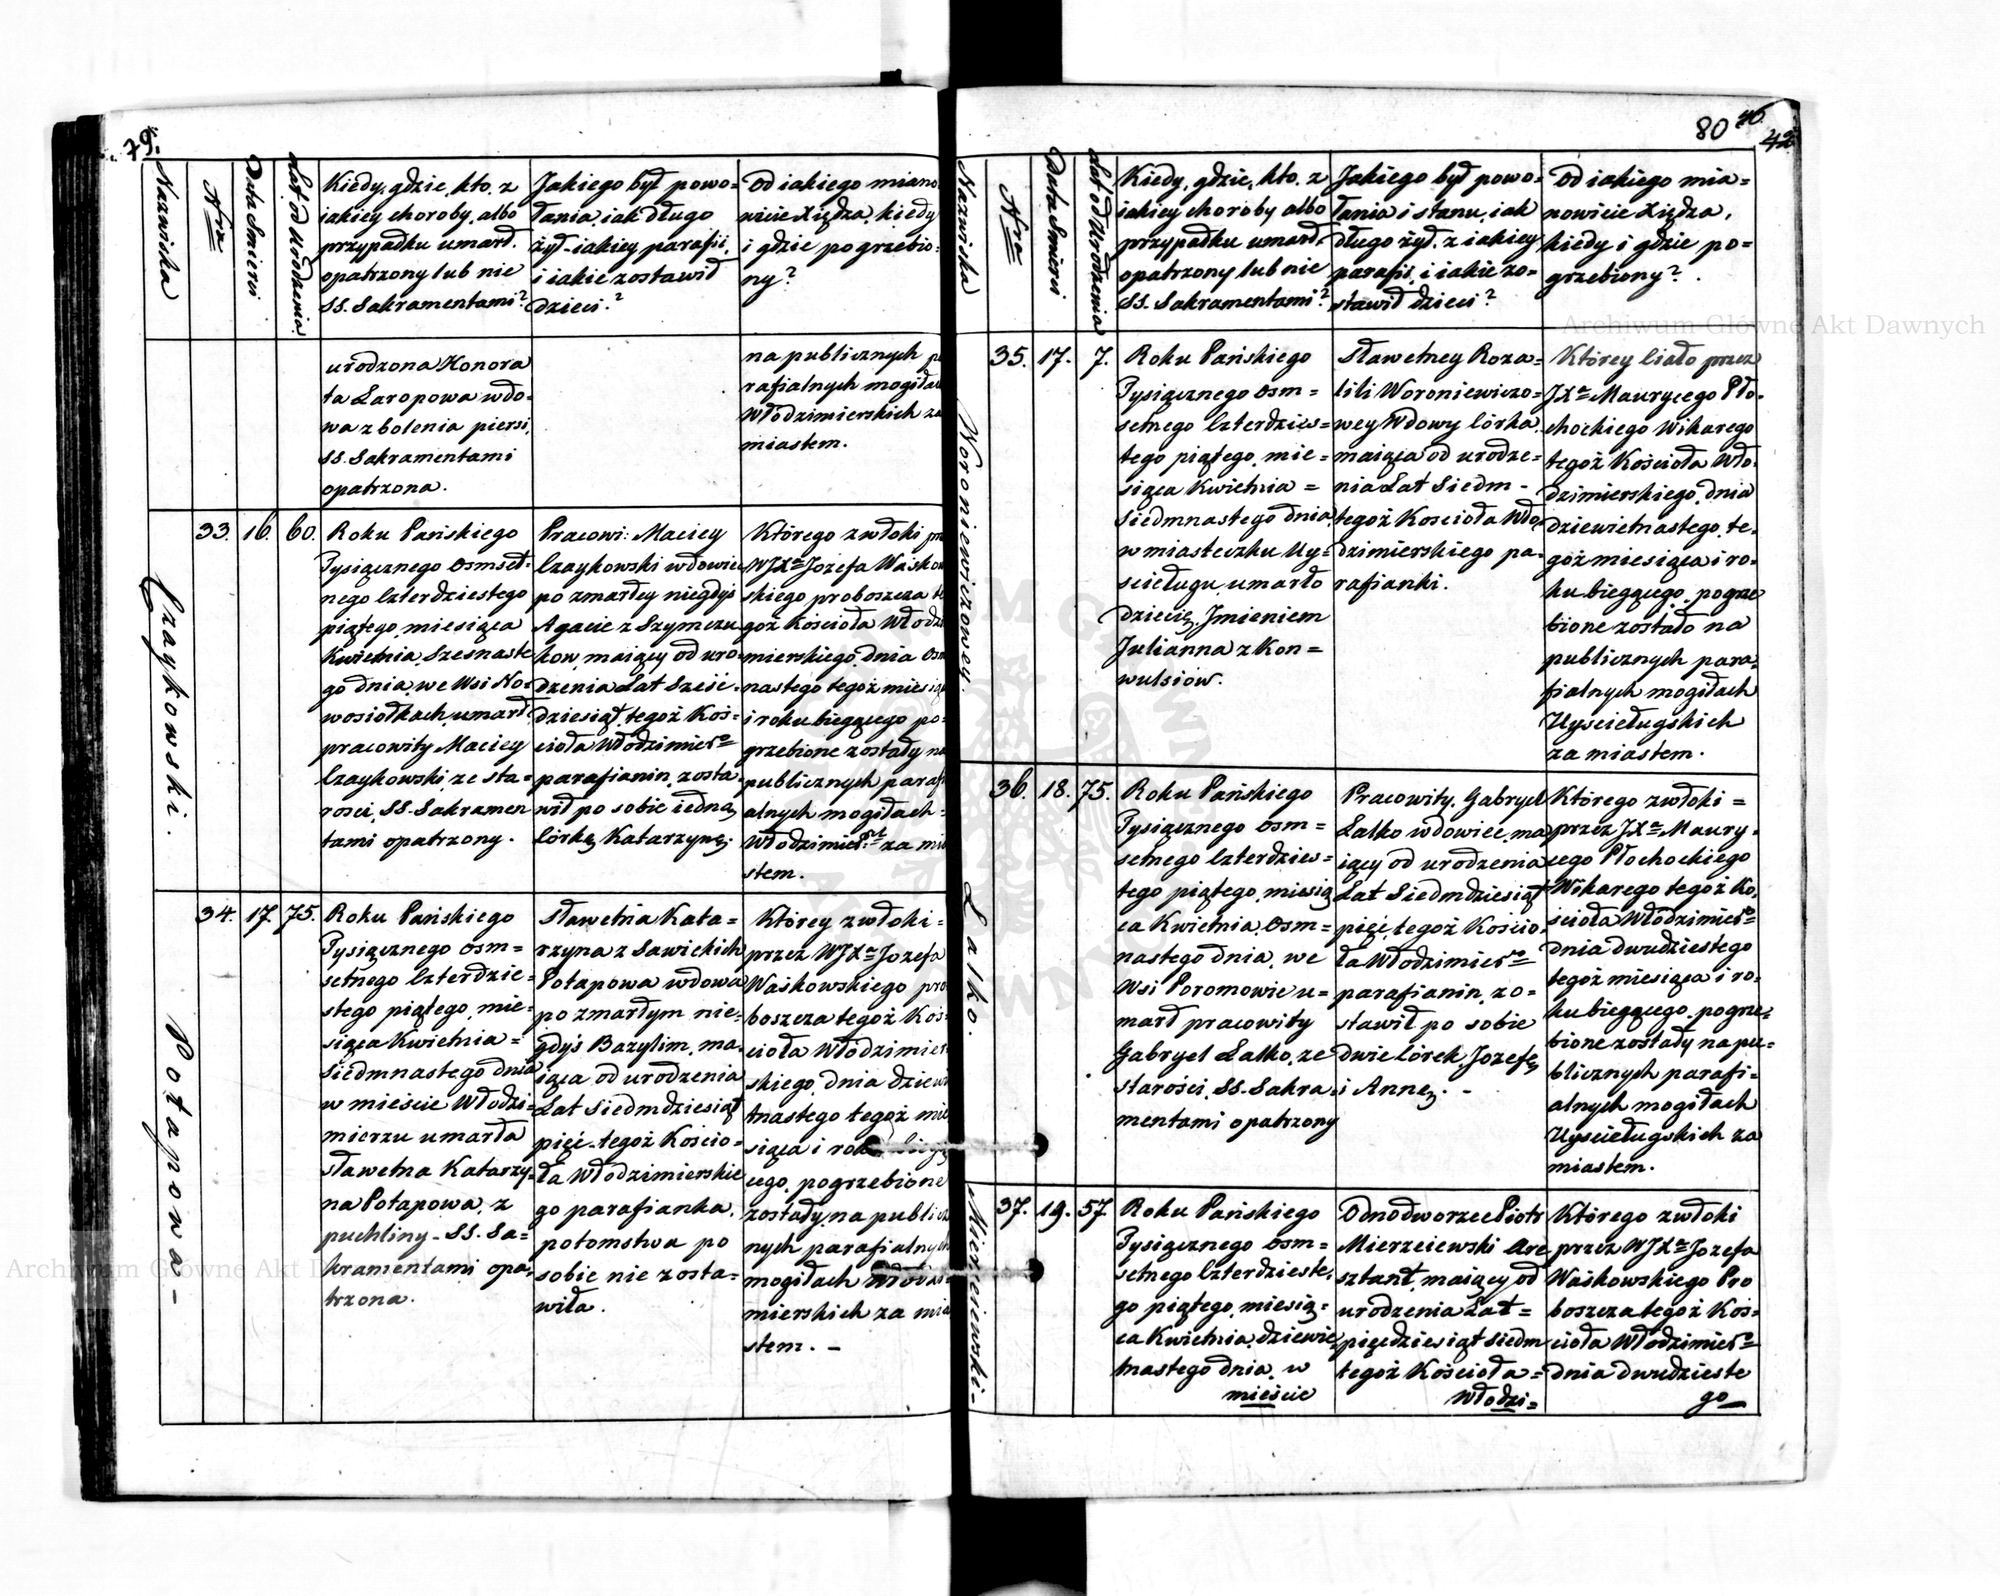 79.
Nazwiska
Nra
Data Smierci
Lat od Urodzenia
Kiedy, gdzie, kto, z
iakiey choroby, albo
przypadku umarł.
opatrzony lub nie
SS. Sakramentami?
Jakiego był powo=
łania, iak długo
żył - iakiey parafii,
i iakie zostawił
dzieci?
Od iakiego miano
wicie Xiędza, kiedy
i gdzie pogrzebio=
ny?
urodzona Honora
ta Laropowa wdo=
wa z bolenia piersi,
SS. Sakramentami
opatrzona.
na publicznych pa
rafialnych mogiłach
Włodzimierskich za
miastem.
Czaykowski.
33. 16. 60.
Roku Pańskiego
Tysiącznego Osmset=
nego Czterdziestego
piątego, miesiąca
Kwietnia, Szesnaste
go dnia, we Wsi No=
wosiołkach, umarł
pracowity Maciey
Czaykowski, ze sta=
rosci, SS. Sakramen
tami opatrzony.
Pracowi: Maciey
Czaykowski wdowiec
po zmarłey niegdyś
Agacie z Szymczu
kow, maiący od uro=
dzenia Lat Sześć=
dziesiąt, tegoż Koś=
cioła Włodzimierso
parafianin, zosta=
wił po sobie iedną
Córkę Katarzynę.
Którego zwłoki prz
WJXa Jozefa Waśkow
skiego proboszcza te
goż Kościoła Włodzi
mierskiego, dnia Osm
nastego tegoż miesiąca
i roku biegącego po=
grzebione zostały na
publicznych parafi
alnych mogiłach=
Włodzimier: za mia
stem.
Potapowa -
34. 17. 75.
Roku Pańskiego
Tysiącznego Osm=
setnego Czterdzie=
stego piątego, mie=
siąca Kwietnia=
Siedmnastego dnia
w mieście Włodzi=
mierzu umarła
sławetna Katarzy=
na Potapowa, z
puchliny - SS. Sa=
kramentami opa=
trzona.
Sławetna Kata=
rzyna z Sawickich
Potapowa wdowa
po zmarłym nie=
gdyś Bazylim, ma=
iąca od urodzenia
Lat Siedmdziesiąt
pięć - tegoż Kościo=
ła Włodzimierskie
go parafianka,
potomstwa po
sobie nie zosta=
wiła.
Którey zwłoki=
przez WJXa Jozefa
Waśkowskiego pro
boszcza tegoż Koś=
cioła Włodzimier
skiego, dnia dziewi
tnastego tegoż mie
siąca i roku biegą
cego, pogrzebione
zostały na publicz
nych parafialnych
mogiłach Włodzi=
mierskich za mia
stem. -
80 46
42
Nazwiska
Nra
Data Smierci
Lat od Urodzenia
Kiedy, gdzie, kto, z
iakiey choroby albo
przypadku umarł.
opatrzony lub nie
SS. Sakramentami?
Jakiego był powo=
łania i stanu, iak
długo żył, z iakiey
parafii, i iakie zo=
stawił dzieci?
Od iakiego mia=
nowicie Xiędza,
kiedy i gdzie po=
grzebiony?
Woroniewiczowey.
35. 17. 7.
Roku Pańskiego
Tysiącznego Osm=
setnego Czterdzies=
tego piątego, mie=
siąca Kwietnia=
Siedmnastego dnia,
w miasteczku Uy=
scieługu, umarło
dziecię Jmieniem
Julianna z Kon=
wulsiów.
Sławetney Roza=
lili Woroniewiczo=
wey Wdowy Córka,
maiąca od urodze=
nia Lat Siedm -
tegoż Koscioła Wło=
dzimierskiego pa=
rafianki.
Którey Ciało przez
JXa Maurycego Pło=
chockiego Wikarego
tegoż Kościoła Wło=
dzimierskiego, dnia
dziewietnastego, te=
goż miesiąca i ro=
ku biegącego, pogrze
bione zostało na
publicznych para=
fialnych mogiłach
Uyscieługskich
za miastem.
Lalko.
36. 18. 75.
Roku Pańskiego
Tysiącznego Osm=
setnego Czterdzies=
tego piątego, miesią
ca Kwietnia, Osm=
nastego dnia, we
Wsi Poromowie u=
marł pracowity
Gabryel Lalko, ze
starości, SS. Sakra=
mentami opatrzony
Pracowity, Gabryel
Lalko wdowiec, ma
iący od urodzenia
Lat Siedmdziesiąt
pięć, tegoż Kościo=
ła Włodzimierso
parafianin, zo=
stawił po sobie
dwie Córek, Jozefę
i Annę. -
Którego zwłoki=
przez JXa Maury=
cego Płochockiego
Wikarego tegoż Ko=
ścioła Włodzimierso
dnia dwudziestego
tegoż miesiąca i ro=
ku biegącego, pogrze=
bione zostały na pu=
blicznych parafi=
alnych mogiłach
Uyscieługskich za
miastem.
Mierzeiewski -
37. 19. 57.
Roku Pańskiego
Tysiącznego Osm=
setnego Czterdzieste=
go piątego, miesią=
ca Kwietnia, dziewię
tnastego dnia, w
mieście
Odnodworzec Piotr
Mierzeiewski Are
sztant, maiący od
urodzenia Lat=
pięćdziesiąt siedm
tegoż Kościoła=
Włodzi=
Którego zwłoki
przez WJXa Jozefa
Waśkowskiego Pro
boszcza tegoż Koś=
cioła Włodzimierso
dnia dwudzieste
go
Archiwum Główne Akt Dawnych
Archiwum Główne Akt Dawnych